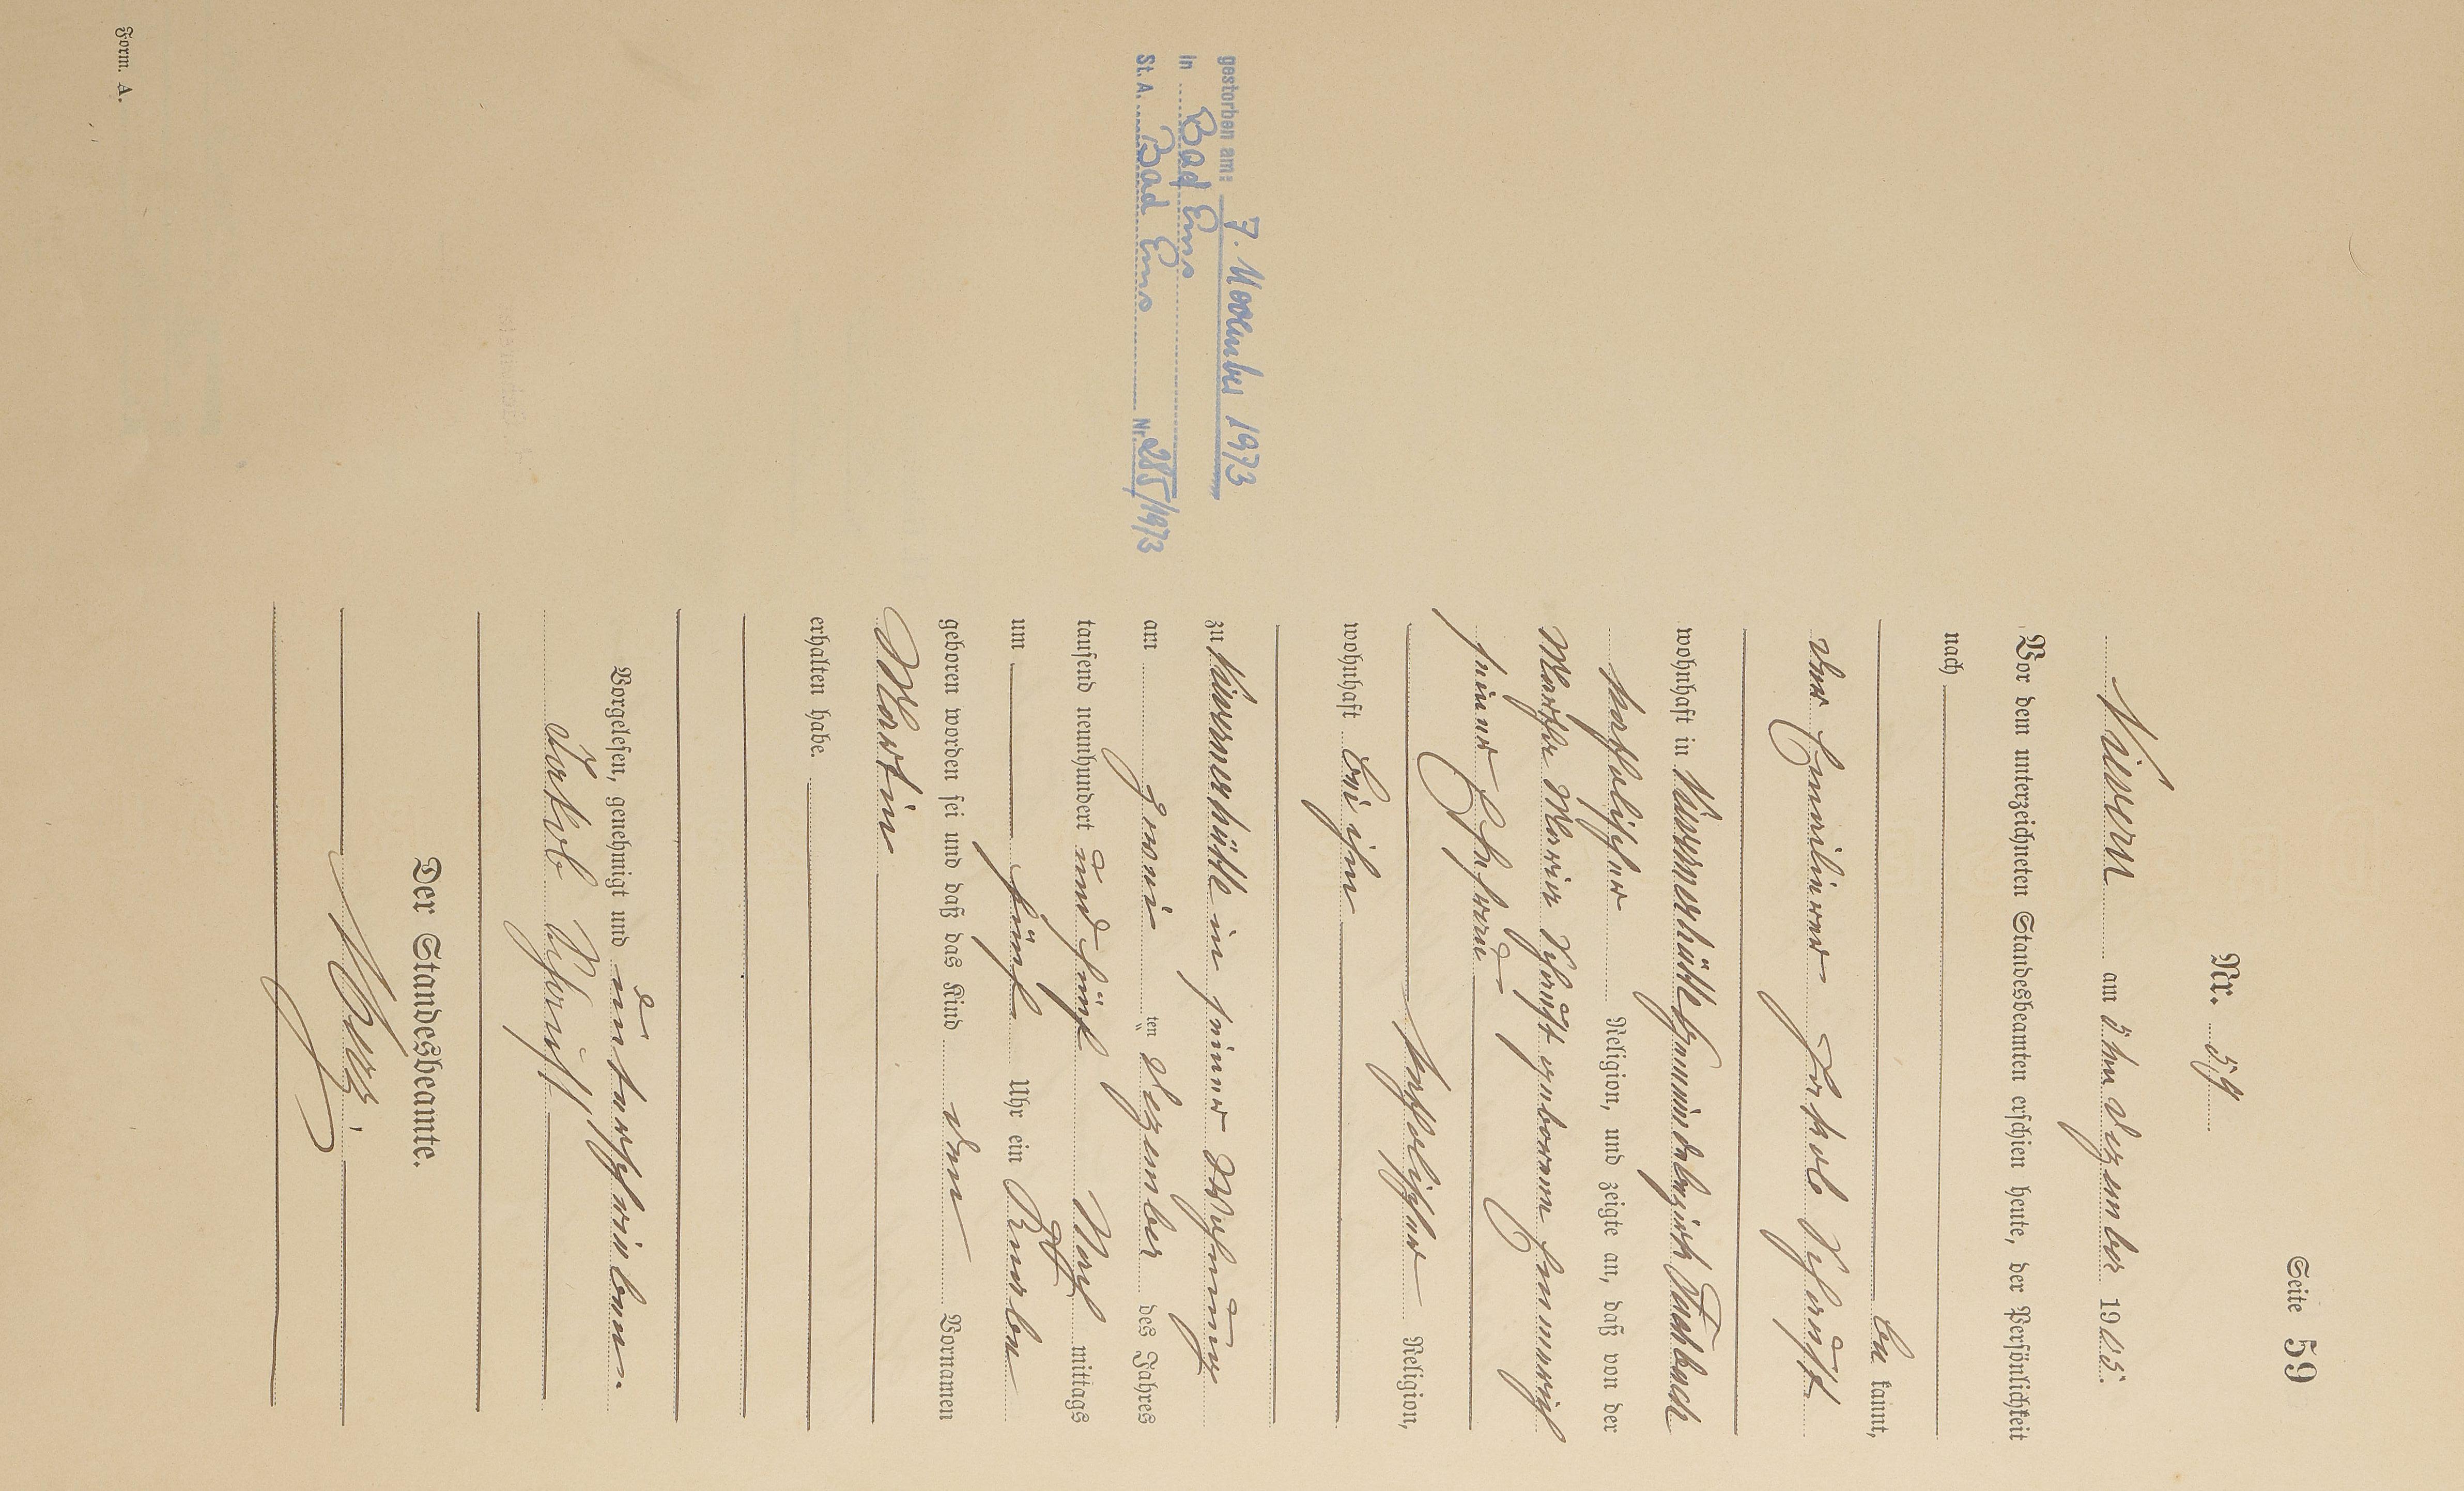 Seite 59
Nr. 59
Nievern am 5ten Dezember 1905.
Vor dem unterzeichneten Standesbeamten erschien heute, der Persönlichkeit
nach
be kannt,
der Jakob
wohnhaft in Nievernerhütte Gemeindebezirk Fachbach
katholischer Religion, und zeigte an, daß von der
Martha Maria geborenen
seiner Ehefrau
katholischer Religion,
wohnhaft bei ihm
zu Nievernerhütte in seiner Wohnung
am zwei ten Dezember des Jahres
tausend neunhundert und fünf Nach mittags
um fünf Uhr ein Knabe
geboren worden sei und daß das Kind den Vornamen
Martin
erhalten habe.
Vorgelesen, genehmigt und unterschrieben.
Jakob
Der Standesbeamte.
gestorben am: 7. November 1973
in Bad Ems
St. A. Bad Ems Nr. 285/1973
Form. A.